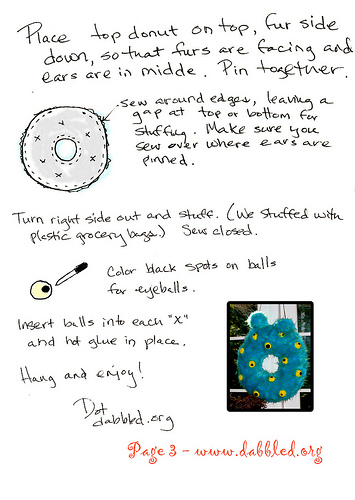 Place top donut on top, fur side
down, so that furs are facing and
ears are in midde. Pin together.
sew around edges, leaving a
gap at top or bottom for
stuffing. Make sure you
sew over where ears are
pinned.
Turn right side out and stuff. (We stuffed with
plastic grocery bags.) Sew closed.
Color black spots on balls
for eyeballs.
Insert balls into each "X"
and hot glue in place.
Hang and enjoy!
Dot
dabbled.org
Page 3 - www.dabbled.org